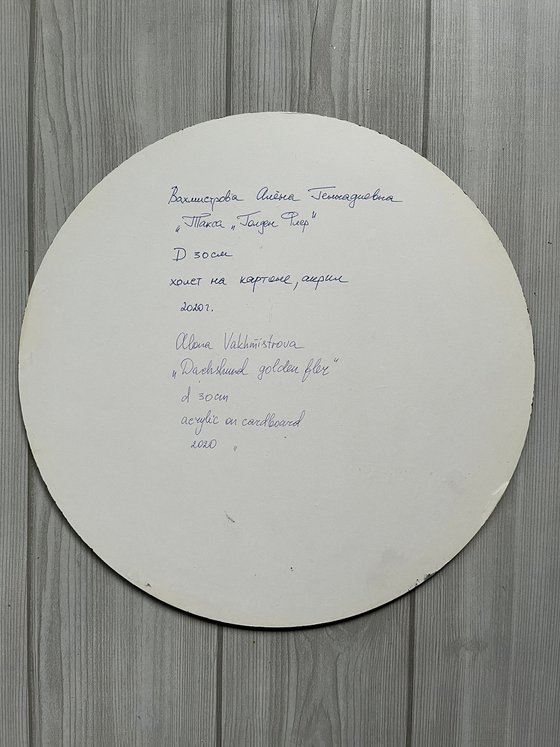 Вахмистрова Алёна Геннадиевна
„Такса „Голден Флер"
D 30 см
холст на картоне, акрил
2020 г.
Alona Vakhmistrova
„Dachshund golden fler"
d 30 cm
acrylic on cardboard
2020